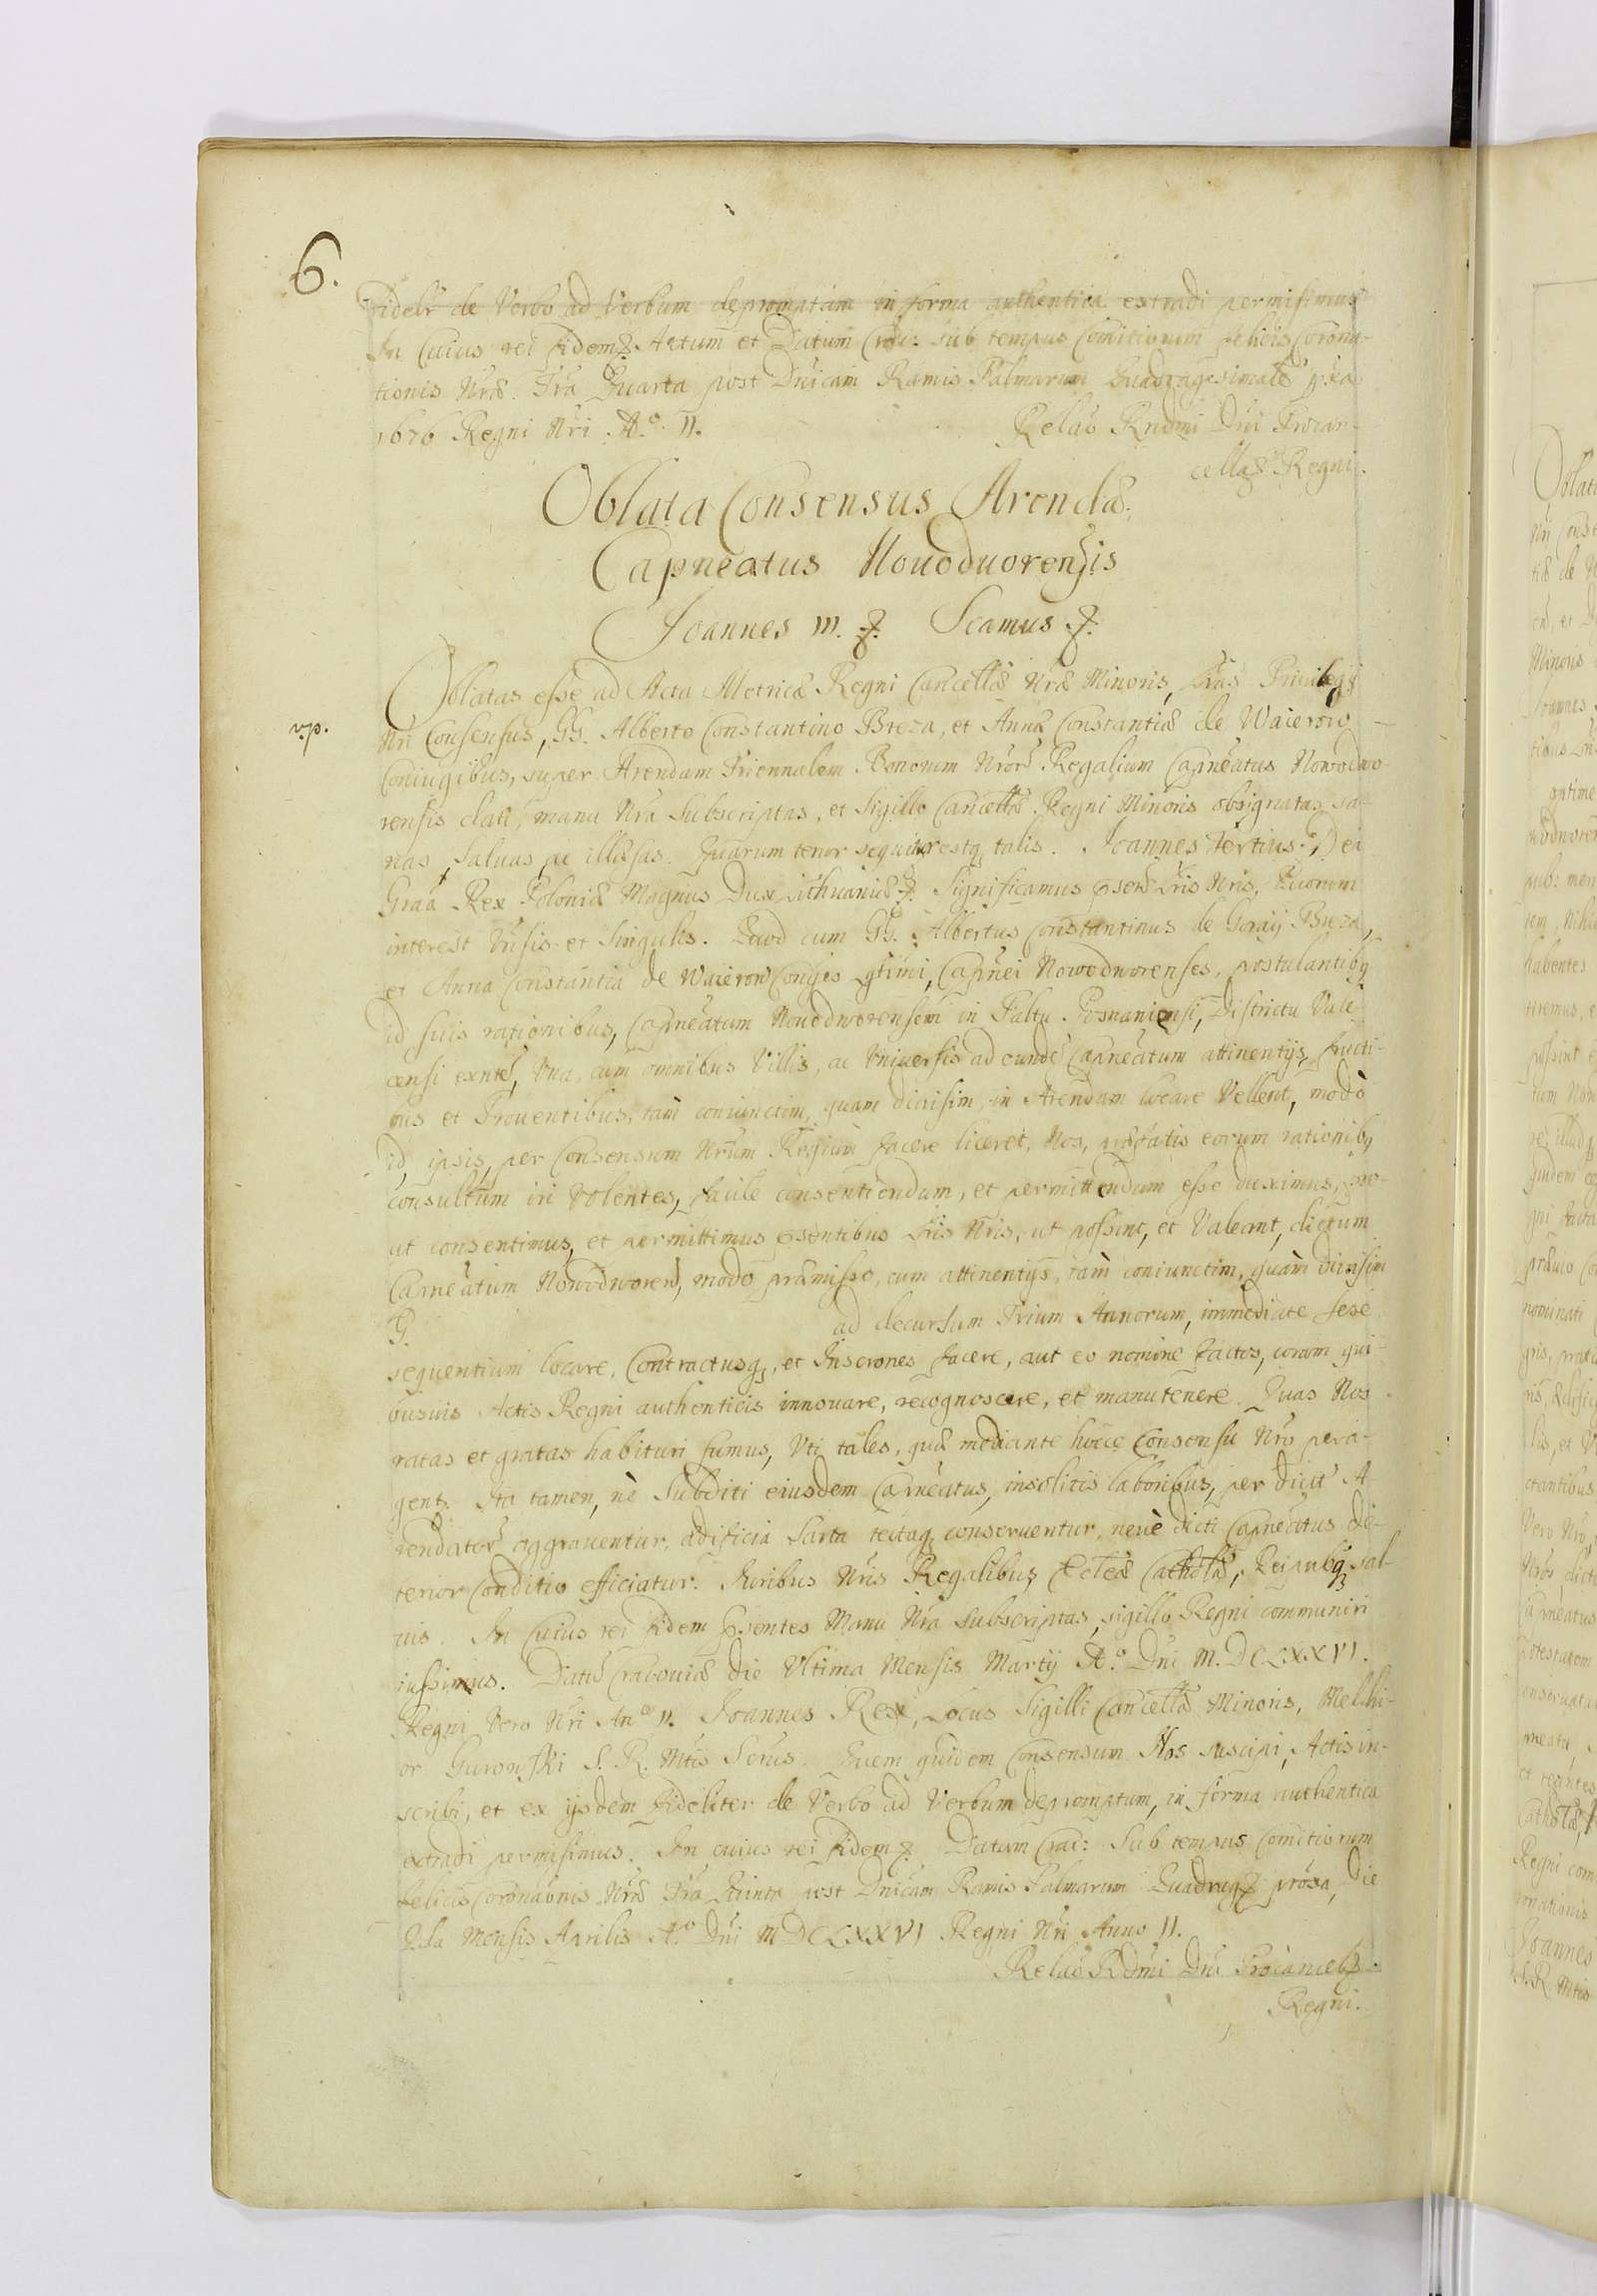 6.
Fidelr de Verbo ad Verbum depromptam in forma authentica extradi permisimus
In Cuius rei fidem Actum et Datum Crac: sub tempus Comitiorum felicis Corona-
tionis Nræ. Fra Quarta post Dnicam Ramis Palmarum Quadragesimalẽ pxa
1676 Regni Nri A.º II.
Relaõ Rndmi Dni Procan-
cellaȩ Regni.
Oblata Consensus Arendæ
Capneatus Nouoduorensis
Joannes III. Scamus
Oblatas esse ad Acta Metricæ Regni Cancellæ Nræ Minoris, Lras Priuilegij
v.p.
Nri Consensus, GG. Alberto Constantino Breza, et Annæ Constantiæ de Waierow
Coniugibus, super Arendam Triennalem Bonorum Nrõr Regalium Capneatus Nowodwo-
rensis dati, manu Nra Subscriptas, et Sigillo Cancellæ Regni Minoris obsignatas, sa-
nas, saluas, ac illæsas. Quarum tenor sequitur estq talis. Joannes Tertius Dei
Graa Rex Poloniæ Magnus Dux Lithuaniæ. Significamus psen Lris Nris, Quorum
interest Vnsis et Singulis. Quod cum GG. Albertus Constantinus de Goray Breza,
et Anna Constantia de Waierow Conges Lgtimi, Capnei Nowodworenses, postulantibq
id suis rationibus, Capneatum Nouodworensem in Paltu Posnaniensi, Districtu Vale-
censi exntẽ, Vna, cum omnibus Villis, ac Vniuersis ad eundẽ Capneatum attinentijs, fructi-
bus et Prouentibus, tam coniunctim, quam diuisim, in Arendam locare Vellent, modò
id, ipsis, per Consensum Nrum Regium facere liceret, Nos, præfatis eorum rationibq
consultum iri Volentes, facile consentiendum, et permittendum esse duximus, pro-
ut consentimus, et permittimus psentibus Lris Nris, ut possint, et Valeant, dictum
Capneatum Nowodworen, modo præmisso, cum attinentijs, tam coniunctim, quàm diuisim
G. ad decursum Trium Annorum, immediate sese
sequentium locare, Contractusq, et Inscrones facere, aut eo nomine factos, coram qui-
busuis Actis Regni authenticis innouare, recognoscere, et manutenere. Quas Nos
ratas et gratas habituri sumus, Vti tales, quæ mediante hocce Consensu Nro pera-
gent. Ita tamen, nè Subditi eiusdem Capneatus, insolitis laboribus, per Dict A-
rendator aggrauentur, ædificia Sarta tectaq conseruentur, neuè dicti Capneatus de-
terior Conditio efficiatur. Juribus Nris Regalibus, Ecleæ Catholæ, Reipubq sal-
uis. In Cuius rei fidem psentes Manu Nra Subscriptas, sigillo Regni communiri
iussimus. Datũ Cracouiæ die Vltima Mensis Martij A.º Dni M.DCLXXVI.
Regni Vero Nri Anº II. Joannes Rex, Locus Sigilli Cancellæ Minoris, Melchi-
or Gurowski S. R. Mtis Scrius. Quem quidem Consensum Nos suscipi, Actis in-
scribi, et ex ijsdem fideliter de Verbo ad Verbum depromptum, in forma authentica
extradi permisimus. In cuius rei fidem. Datum Crac: Sub tempus Comitiorum
felicis Coronaõnis Nræ Fra Quinta post Dnicam Ramis Palmarum Quadrag próxa, Die
2da Mensis Aprilis A.º Dni MDCLXXVI Regni Nri Anno II.
Relaõ Rdmi Dni Procancel
Regni.